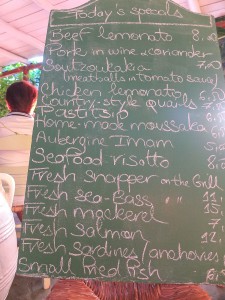 Today's specials
Beef lemonato 8.
Pork in wine & coriander
Soutzoukakia
(meatballs in tomato sauce)
Chicken lemonato
Country-style quails
Pastitsio
Home-made moussaka
Aubergine Imam
Seafood risotto
Fresh snapper on the Grill
Fresh sea-Bass " 11,
Fresh mackerel " 15,
Fresh salmon " 7,
Fresh sardines/anchovies 12,
Small fried fish